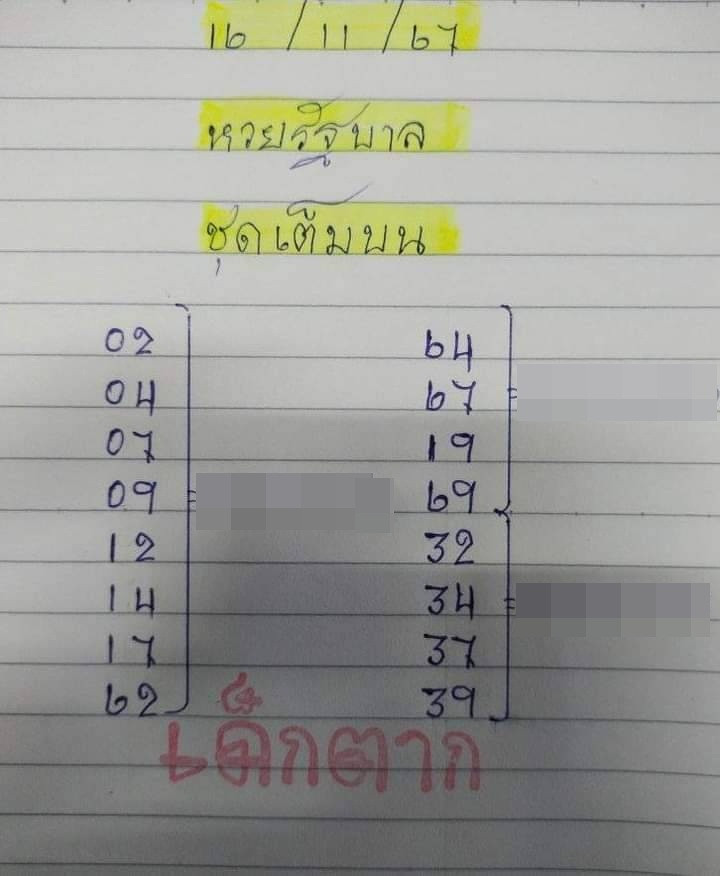 16 / 11 / 67
หวยรัฐบาล
ชุดเต็มบน
02
04
07
09 =
12
14
17
62
64
67 =
19
69
32
34 =
37
39
เด็กตาก